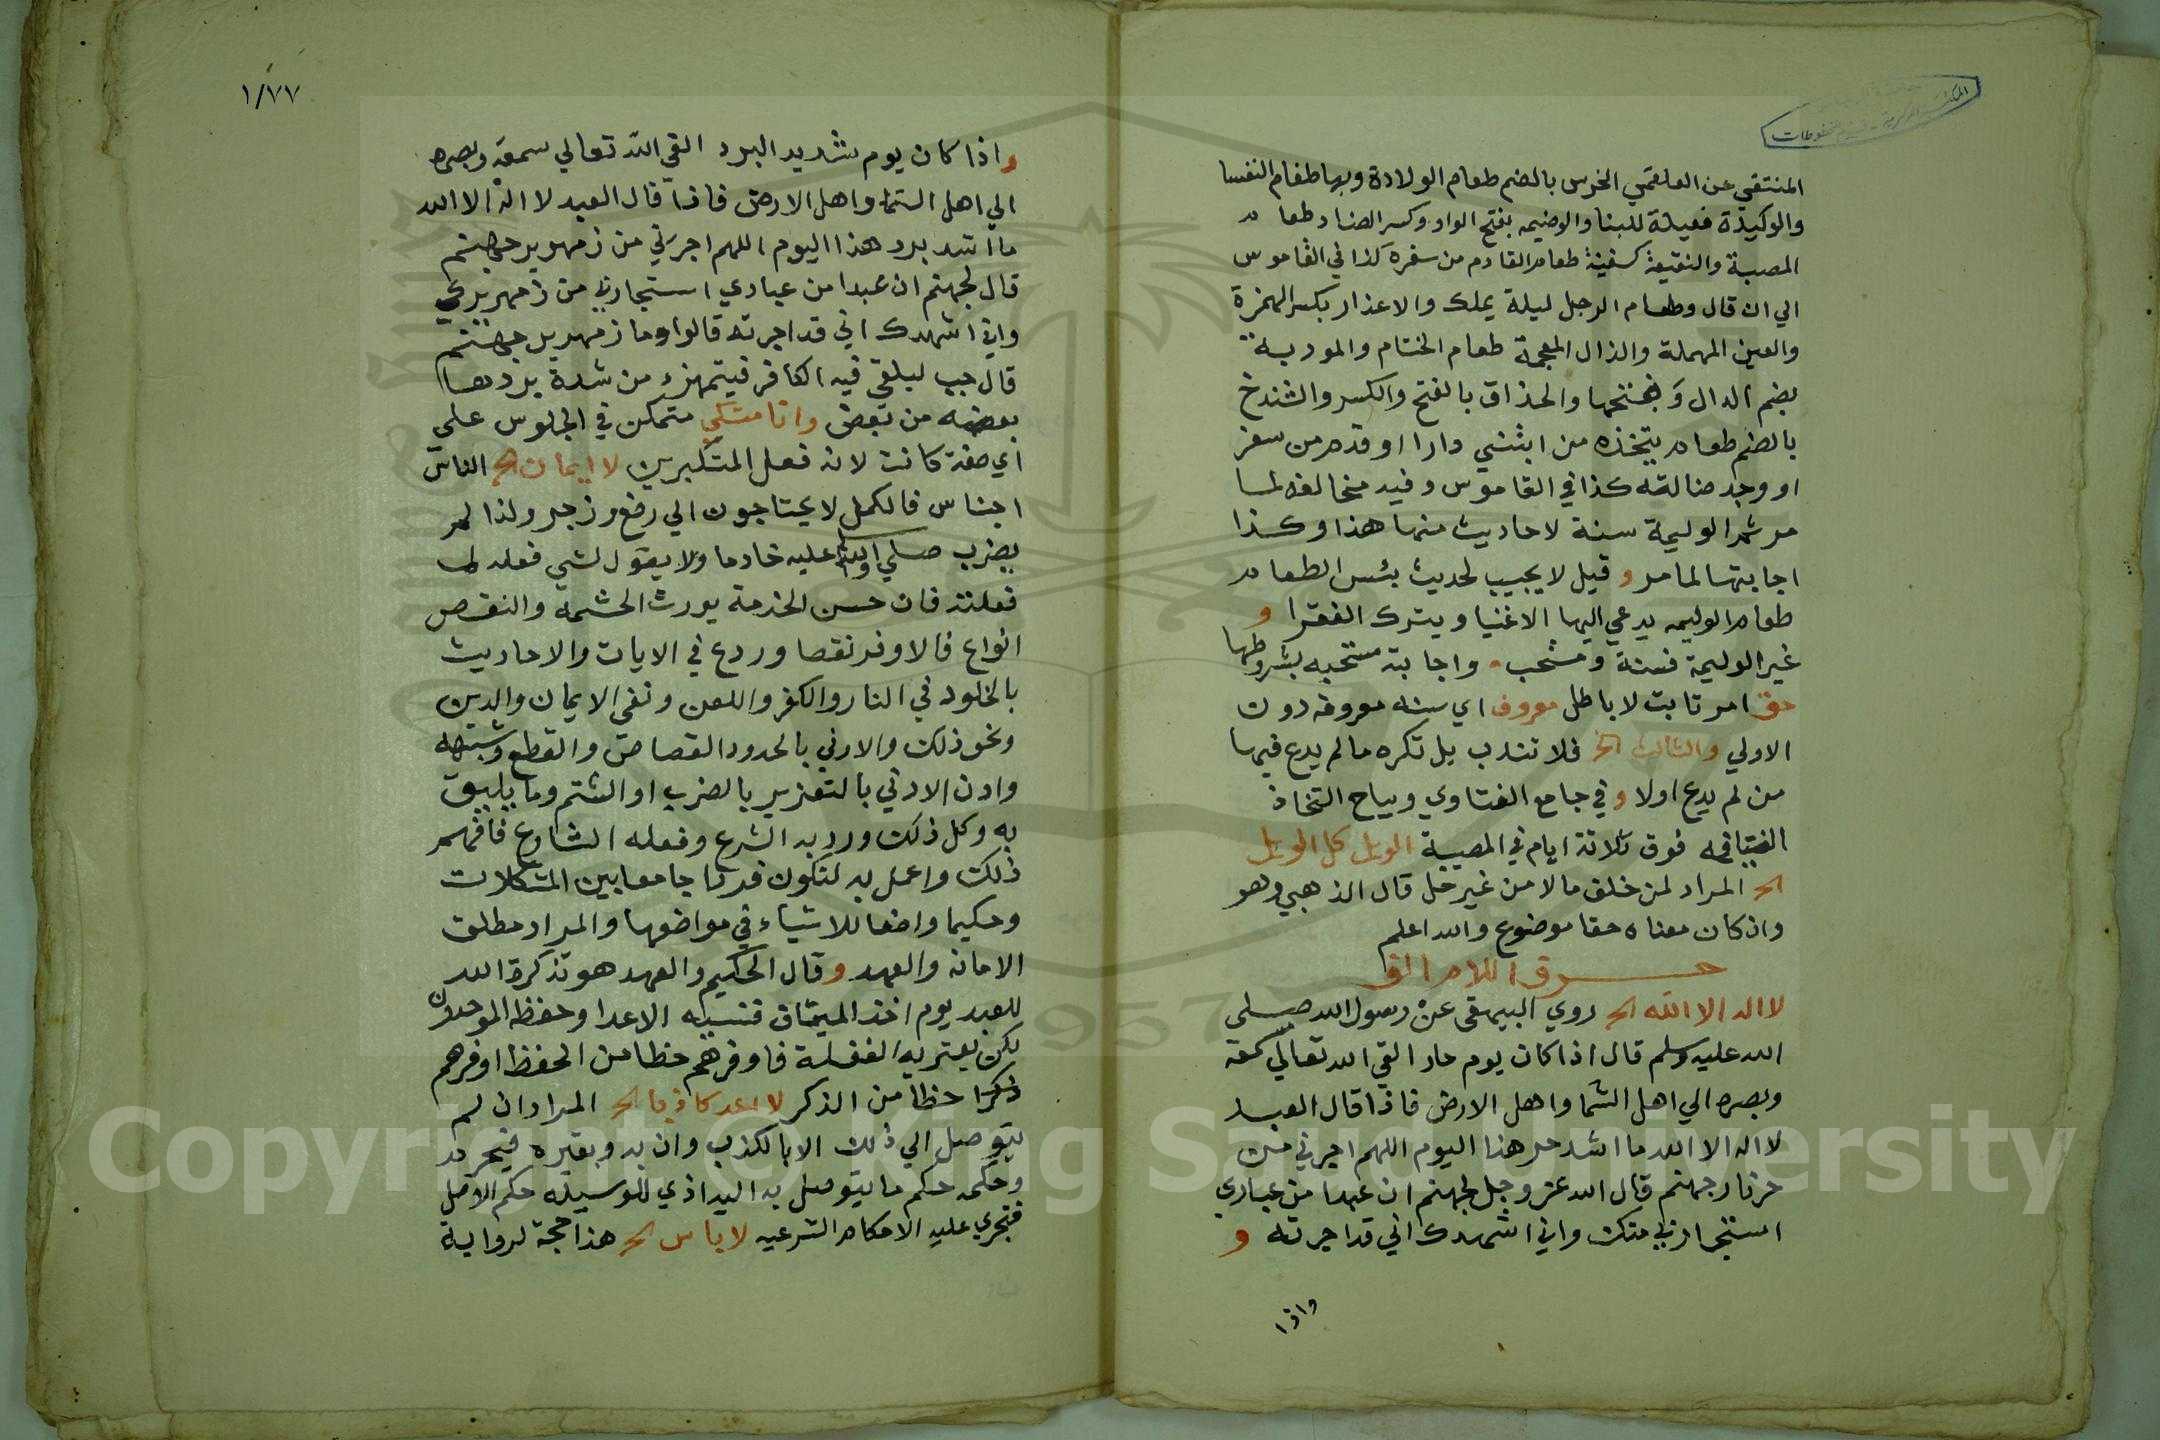 المنتقي عن العلقمي الخرس بالضم طعام الولادة وبها طعام النفسا
والوكيرة فعيلة للبنا والوضيمه بفتح الواو وكسر الضاد طعام
المصيبة والنقيعة كسفينة طعام القادم من سفره كذا في القاموس
الي ان قال وطعام الرجل ليلة يملك والاعذار بكسر الهمزة
والعين المهملة والذال المعجمة طعام الختام والمودبة
بضم الدال وبفتحها والحذاق بالفتح والكسر والشندخ
بالضم طعام يتخذه من ابتني دارا او قدم من سفر
او وجد ضالته كذا في القاموس وفيه مخالفه لما
مر ثم الوليمة سنة لاحاديث منها هذا وكذا
اجابتها لما مر و قيل لا يجيب لحديث بئس الطعام
طعام الوليمه يدعي اليها الاغنيا ويترك الفقرا و
غير الوليمة فسنة ومستحب واجابته مستحبه بشروطها
حق امر ثابت لا باطل معروف اي سنه معروفه دون
الاولي والثالث الخ فلا تندب بل تكره ما لم يدع فيها
من لم يدع اولا و في جامع الفتاوي ويباح اتخاذ
الضيافه فوق ثلاثة ايام في المصيبة الويل كل الويل
الخ المراد لمن خلف مالا من غير حل قال الذهبي وهو
وان كان معناه حقا موضوع والله اعلم
حرف اللام الف
لا اله الا الله الخ روي البيهقي عن رسول الله صلي
الله عليه وسلم قال اذا كان يوم حار القي الله تعالي سمعه
وبصره الي اهل السما واهل الارض فاذا قال العبد
لا اله الا الله ما اشد حر هذا اليوم اللهم اجرني من
حر نار جهنم قال الله عز وجل لجهنم ان عبدا من عبادي
استجارني منك واني اشهدك اني قد اجرته و
واذا
١/٧٧
واذا كان يوم شديد البرد القي الله تعالي سمعه وبصره
الي اهل السما واهل الارض فاذا قال العبد لا اله الا الله
ما اشد برد هذا اليوم اللهم اجرني من زمهرير جهنم
قال لجهنم ان عبدا من عبادي استجارني من زمهريرك
واني اشهدك اني قد اجرته قالوا وما زمهرير جهنم
قال جب ليلقي فيه الكافر فيتمهزء من شدة بردها
بعضه من بعض وانا متكي متمكن في الجلوس علي
اي صفة كانت لانه فعل المتكبرين لا ايمان الخ الناس
اجناس فالكمل لا يحتاجون الي رفع وزجر ولذا لم
يضرب صلي الله عليه خادما ولا يقول لشي فعله لم
فعلته فان حسن الخدمة يورث الحشمة والنقص
انواع فالاوفر نقصا وردع في الايات والاحاديث
بالخلود في النار والكفر واللعن ونفي الايمان والدين
ونحو ذلك والادني بالحدود القصاص والقطع وشبهه
وادن الادني بالتعزير بالضرب او الشتم وما يليق
به وكل ذلك ورد به الشرع وفعله الشارع فافهم
ذلك واعمل به لتكون فردا جامعا بين المشكلات
وحكيما واضعا للاشياء في مواضعها والمراد مطلق
الامانه والعهد و قال الحكيم والعهد هو تذكرة الله
للعبد يوم اخذ الميثاق فنسيه الاعدا وحفظه الموحدون
لكن يعتريه الغفلة فاوفرهم حظا من الحفظ اوفرهم
حظا من الذكر لا اعد كاذبا الخ المراد ان لم
يتوصل الي ذلك الا بالكذب وان به وبغيره فيحرم
وحكمه حكم ما يتوصل به اليه اذي للوسيله حكم الاصل
فتجري عليه الاحكام الشرعيه لا باس الخ هذا حجة لرواية
Copyright © King Saud University
1957